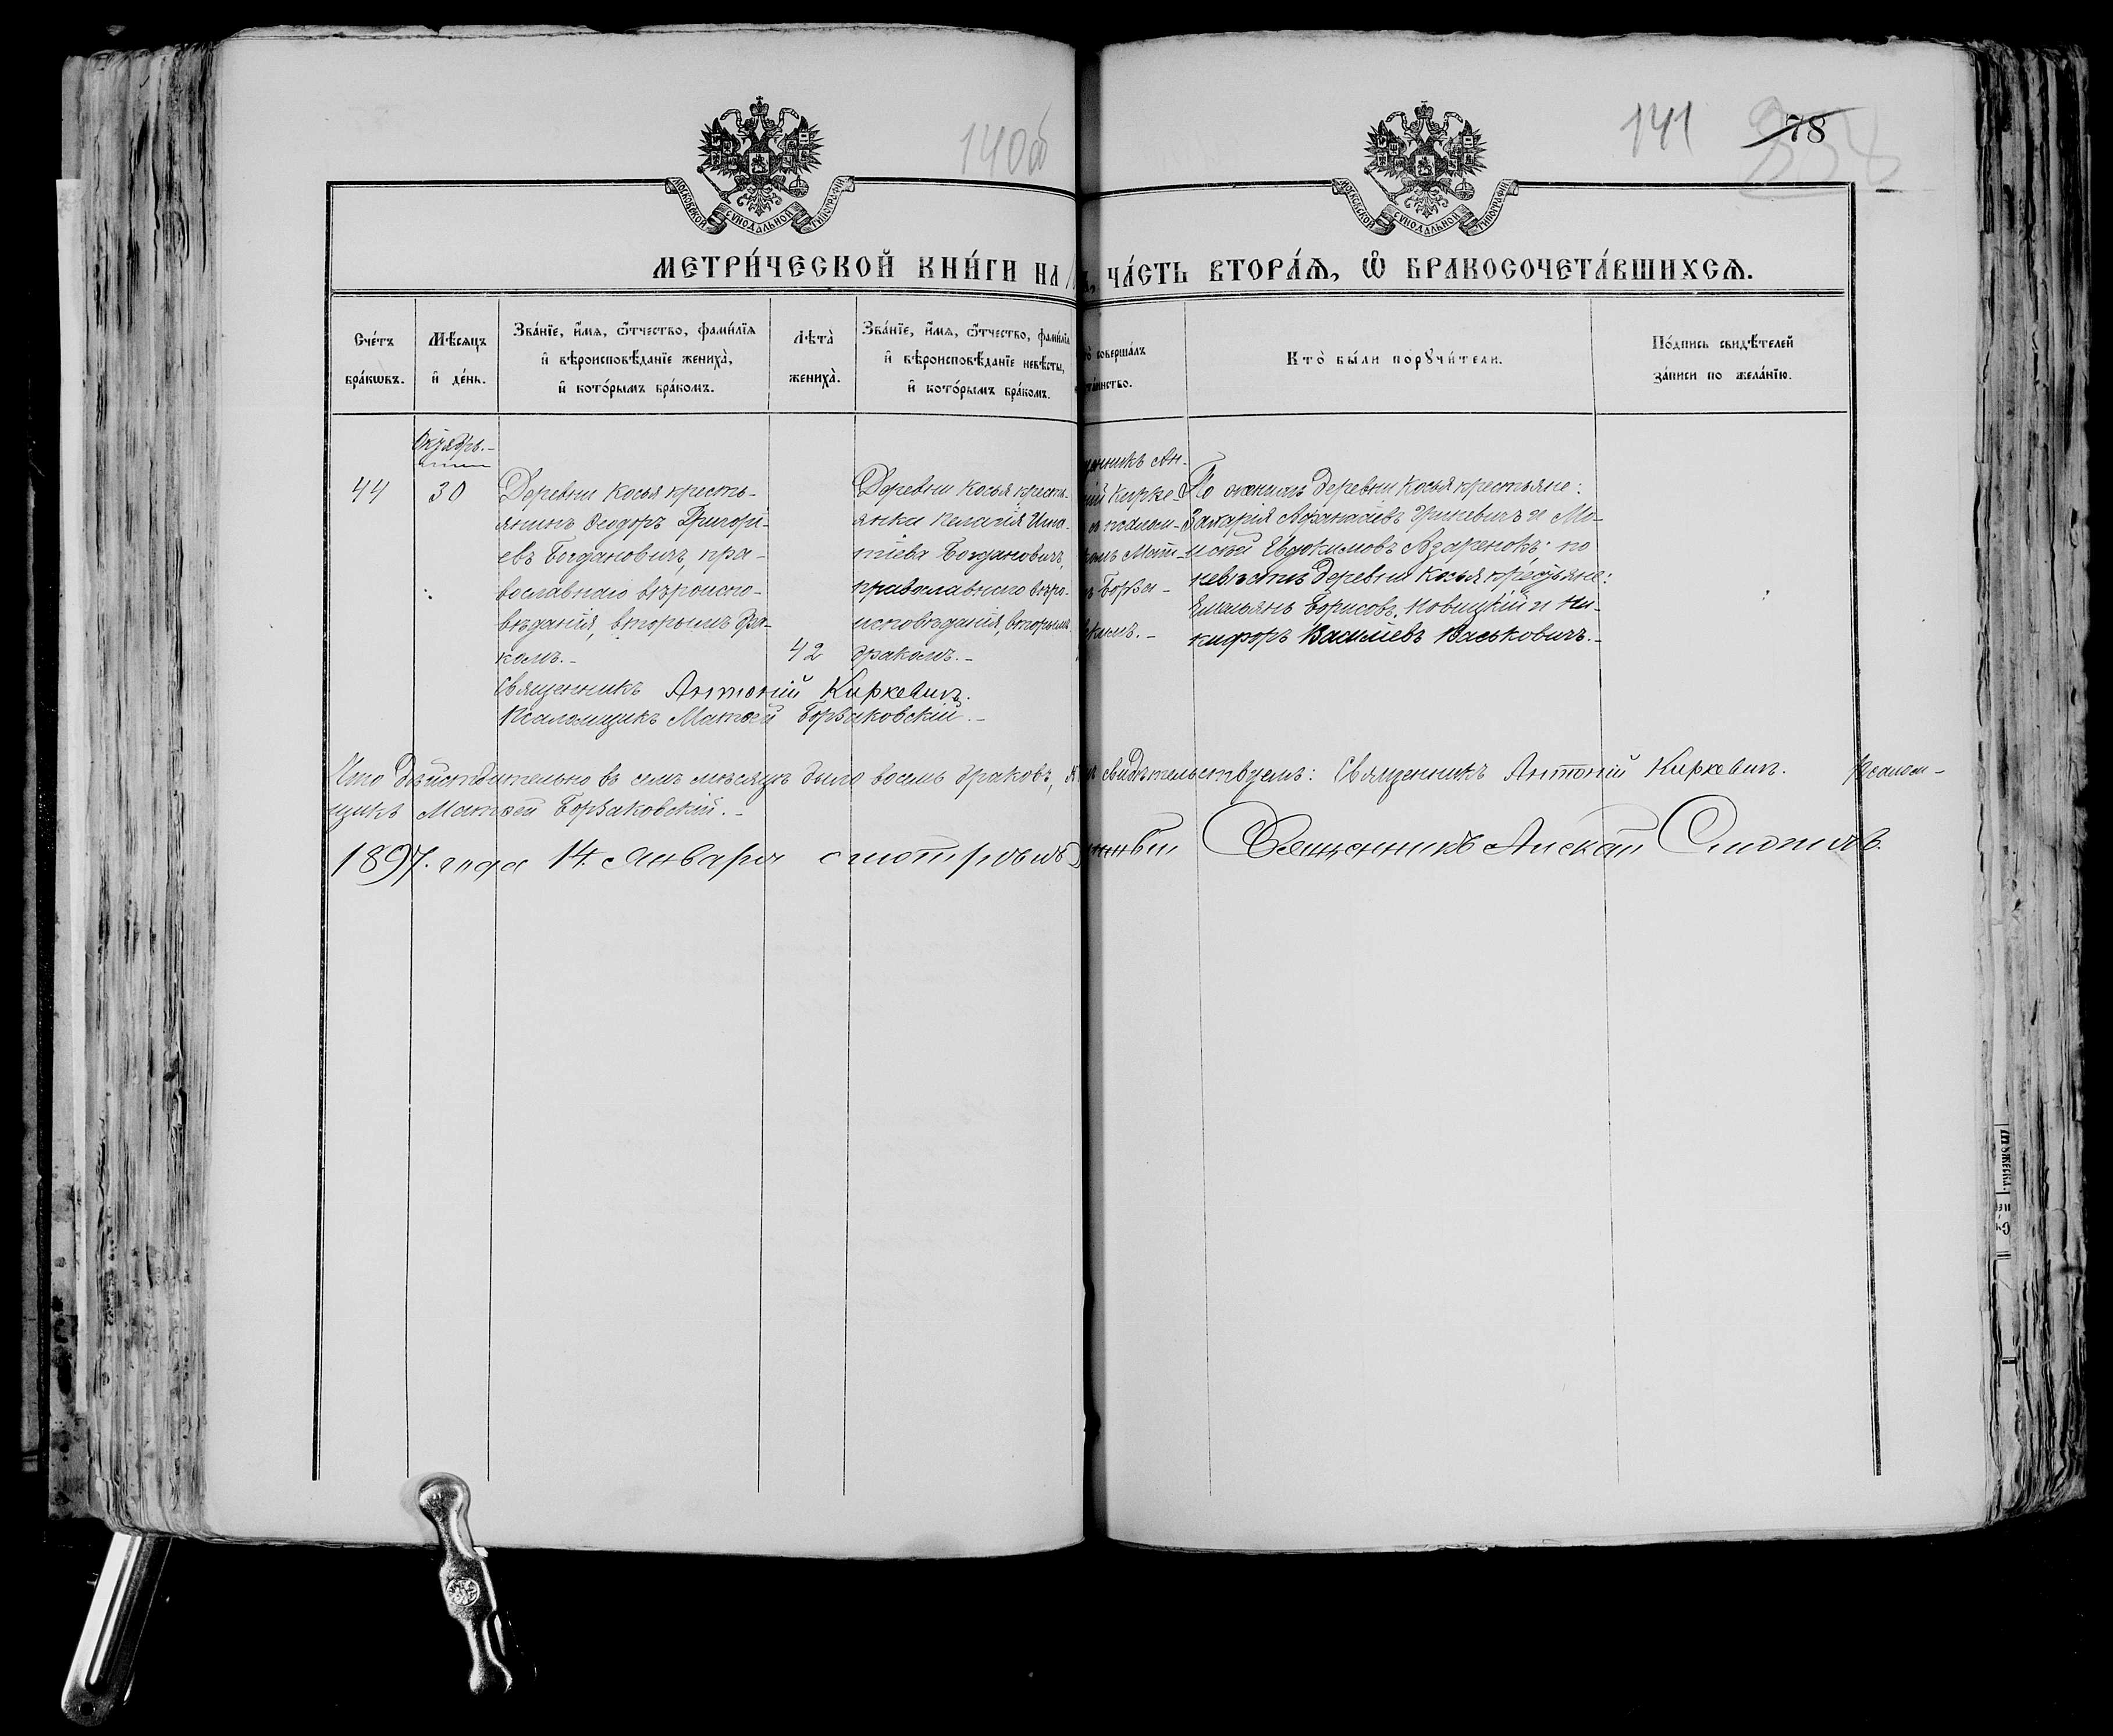 140об
141
78
МОСКОВСКОЙ СѴНОДАЛЬНОЙ ТИПОГРАФІИ
МОСКОВСКОЙ СѴНОДАЛЬНОЙ ТИПОГРАФІИ
МЕТРИ́ЧЕСКОЙ КНИ́ГИ НА
ЧА́СТЬ ВТОРА́Ѧ, Ѽ БРАКОСОЧЕТА́ВШИХСѦ.
Сче́тъ бра́кѡвъ.
Мѣ́сяцъ и҆ де́нь.
Зва́нїе, и҆́мѧ, ѻ҆́тчество, фами́лїѧ
и҆ вѣроисповѣ́данїе жениха̀,
и҆ кото́рымъ бра́комъ.
Лѣта̀ жениха̀.
Зва́нїе, и҆́мѧ, ѻ҆́тчество, фами́лїѧ
и҆ вѣроисповѣ́данїе невѣ́сты,
и҆ кото́рымъ бра́комъ.
соверша́лъ
та́инство.
Кто̀ бы́ли порꙋчи́тели.
По́дпись свидѣ́телей
за́писи по жела́нїю.
Октябрь.
44
30
Деревни Косья кресть-
янинъ Ѳеодоръ Григорі-
евъ Богдановичъ, пра-
вославнаго вѣроиспо-
вѣданія, вторымъ бра-
комъ.-
42
Деревни Косья кресть-
янка Пелагія Игна-
тіева Богдановичъ,
православнаго вѣро-
исповѣданія, вторымъ
бракомъ.-
щенникъ Ан-
ній Кирке-
псалом-
комъ Мат-
Борза-
скимъ.-
По женихѣ деревни Косья крестьяне:
Захарія Аѳанасіевъ Гриневичъ и Мо-
исей Евдокимовъ Азаренокъ; по
невѣстѣ деревни Косья крестьяне:
Емельянъ Борисовъ Новицкій и Ни-
кифоръ Василіевъ Васьковичъ.-
Священникъ Антоній Киркевичъ.
Псаломщикъ Матѳей Борзаковскій.-
Что дѣйствительно въ семъ мѣсяцѣ было восемь браковъ, свидѣтельствуемъ: Священникъ Антоній Киркевичъ. Псалом-
щикъ Матѳей Борзаковскій.-
1897. года 14 Января смотрѣлъ Священникъ